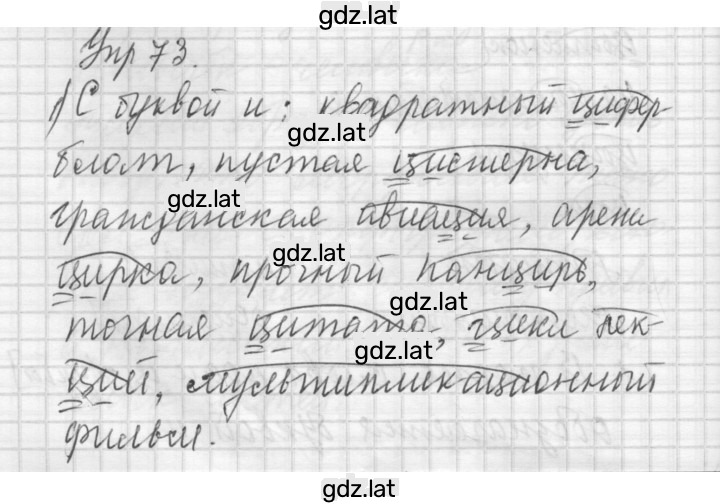 gdz.lat
Упр 73.
1) С буквой и: квадратный цифер-
gdz.lat
блат, пустая цистерна,
gdz.lat
гражданская авиация, арена
gdz.lat
цирка, прочный панцирь,
gdz.lat
точная цитата, цикл лек-
gdz.lat
ций, мультипликационный
фильм.
gdz.lat